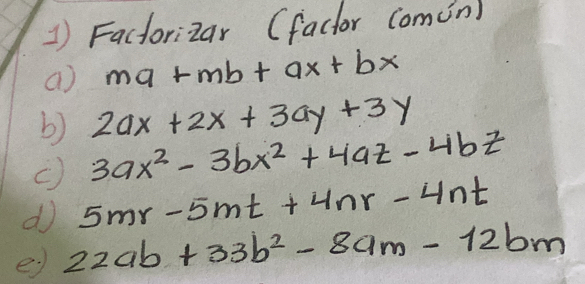 1) Factorizar (factor común)
a) ma + mb + ax + bx
b) 2ax + 2x + 3ay + 3y
c) 3ax² - 3bx² + 4az - 4bz
d) 5mr - 5mt + 4nr - 4nt
e) 22ab + 33b² - 8am - 12bm